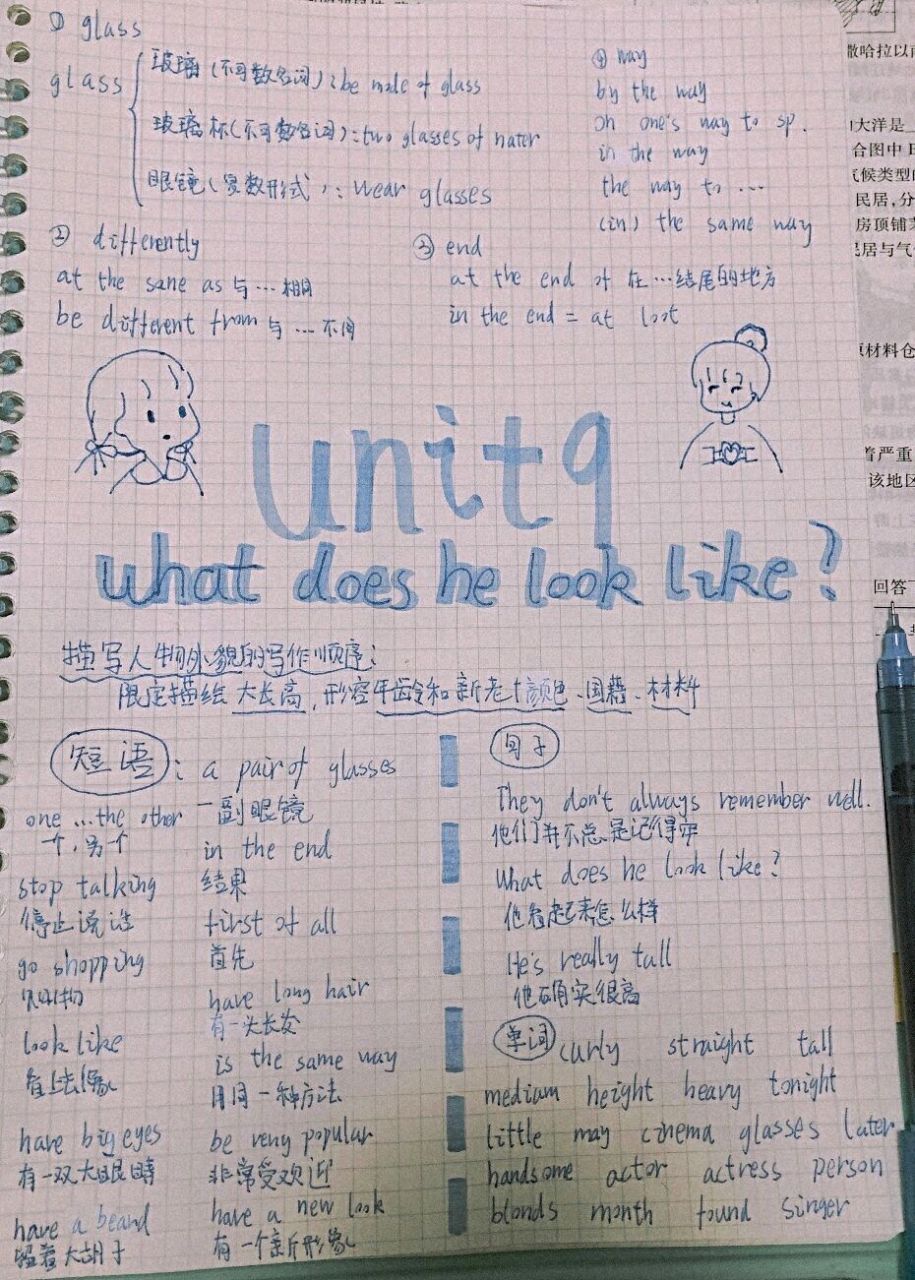 ① glass
glass
玻璃(不可数名词):be made of glass
玻璃杯(不可数名词):two glasses of water
眼镜(复数形式):wear glasses
④ way
by the way
on one's way to sp.
in the way
the way to …
(in) the same way
② differently
at the same as 与…相同
be different from 与…不同
③ end
at the end of 在…结尾的地方
in the end = at last
unit9
what does he look like?
描写人物外貌的写作顺序:
限定描绘大长高,形容年龄和新老+颜色、国籍、材料
短语:
one …the other
一个,另个
stop talking
停止说话
go shopping
购物
look like
看上去像
have big eyes
有一双大眼睛
have a beard
留着大胡子
a pair of glasses
一副眼镜
in the end
结果
first of all
首先
have long hair
有一头长发
is the same way
用同一种方法
be very popular
非常受欢迎
have a new look
有一个新形象
句子
They don't always remember well.
他们并不总是记得牢
What does he look like?
他看起来怎么样
He's really tall
他确实很高
单词 curly straight tall
medium height heavy tonight
little may cinema glasses later
handsome actor actress person
blonds month found singer
撒哈拉以
大洋是
合图中
气候类型
民居,分
房顶铺
民居与气
原材料仓
着严重
该地区
回答